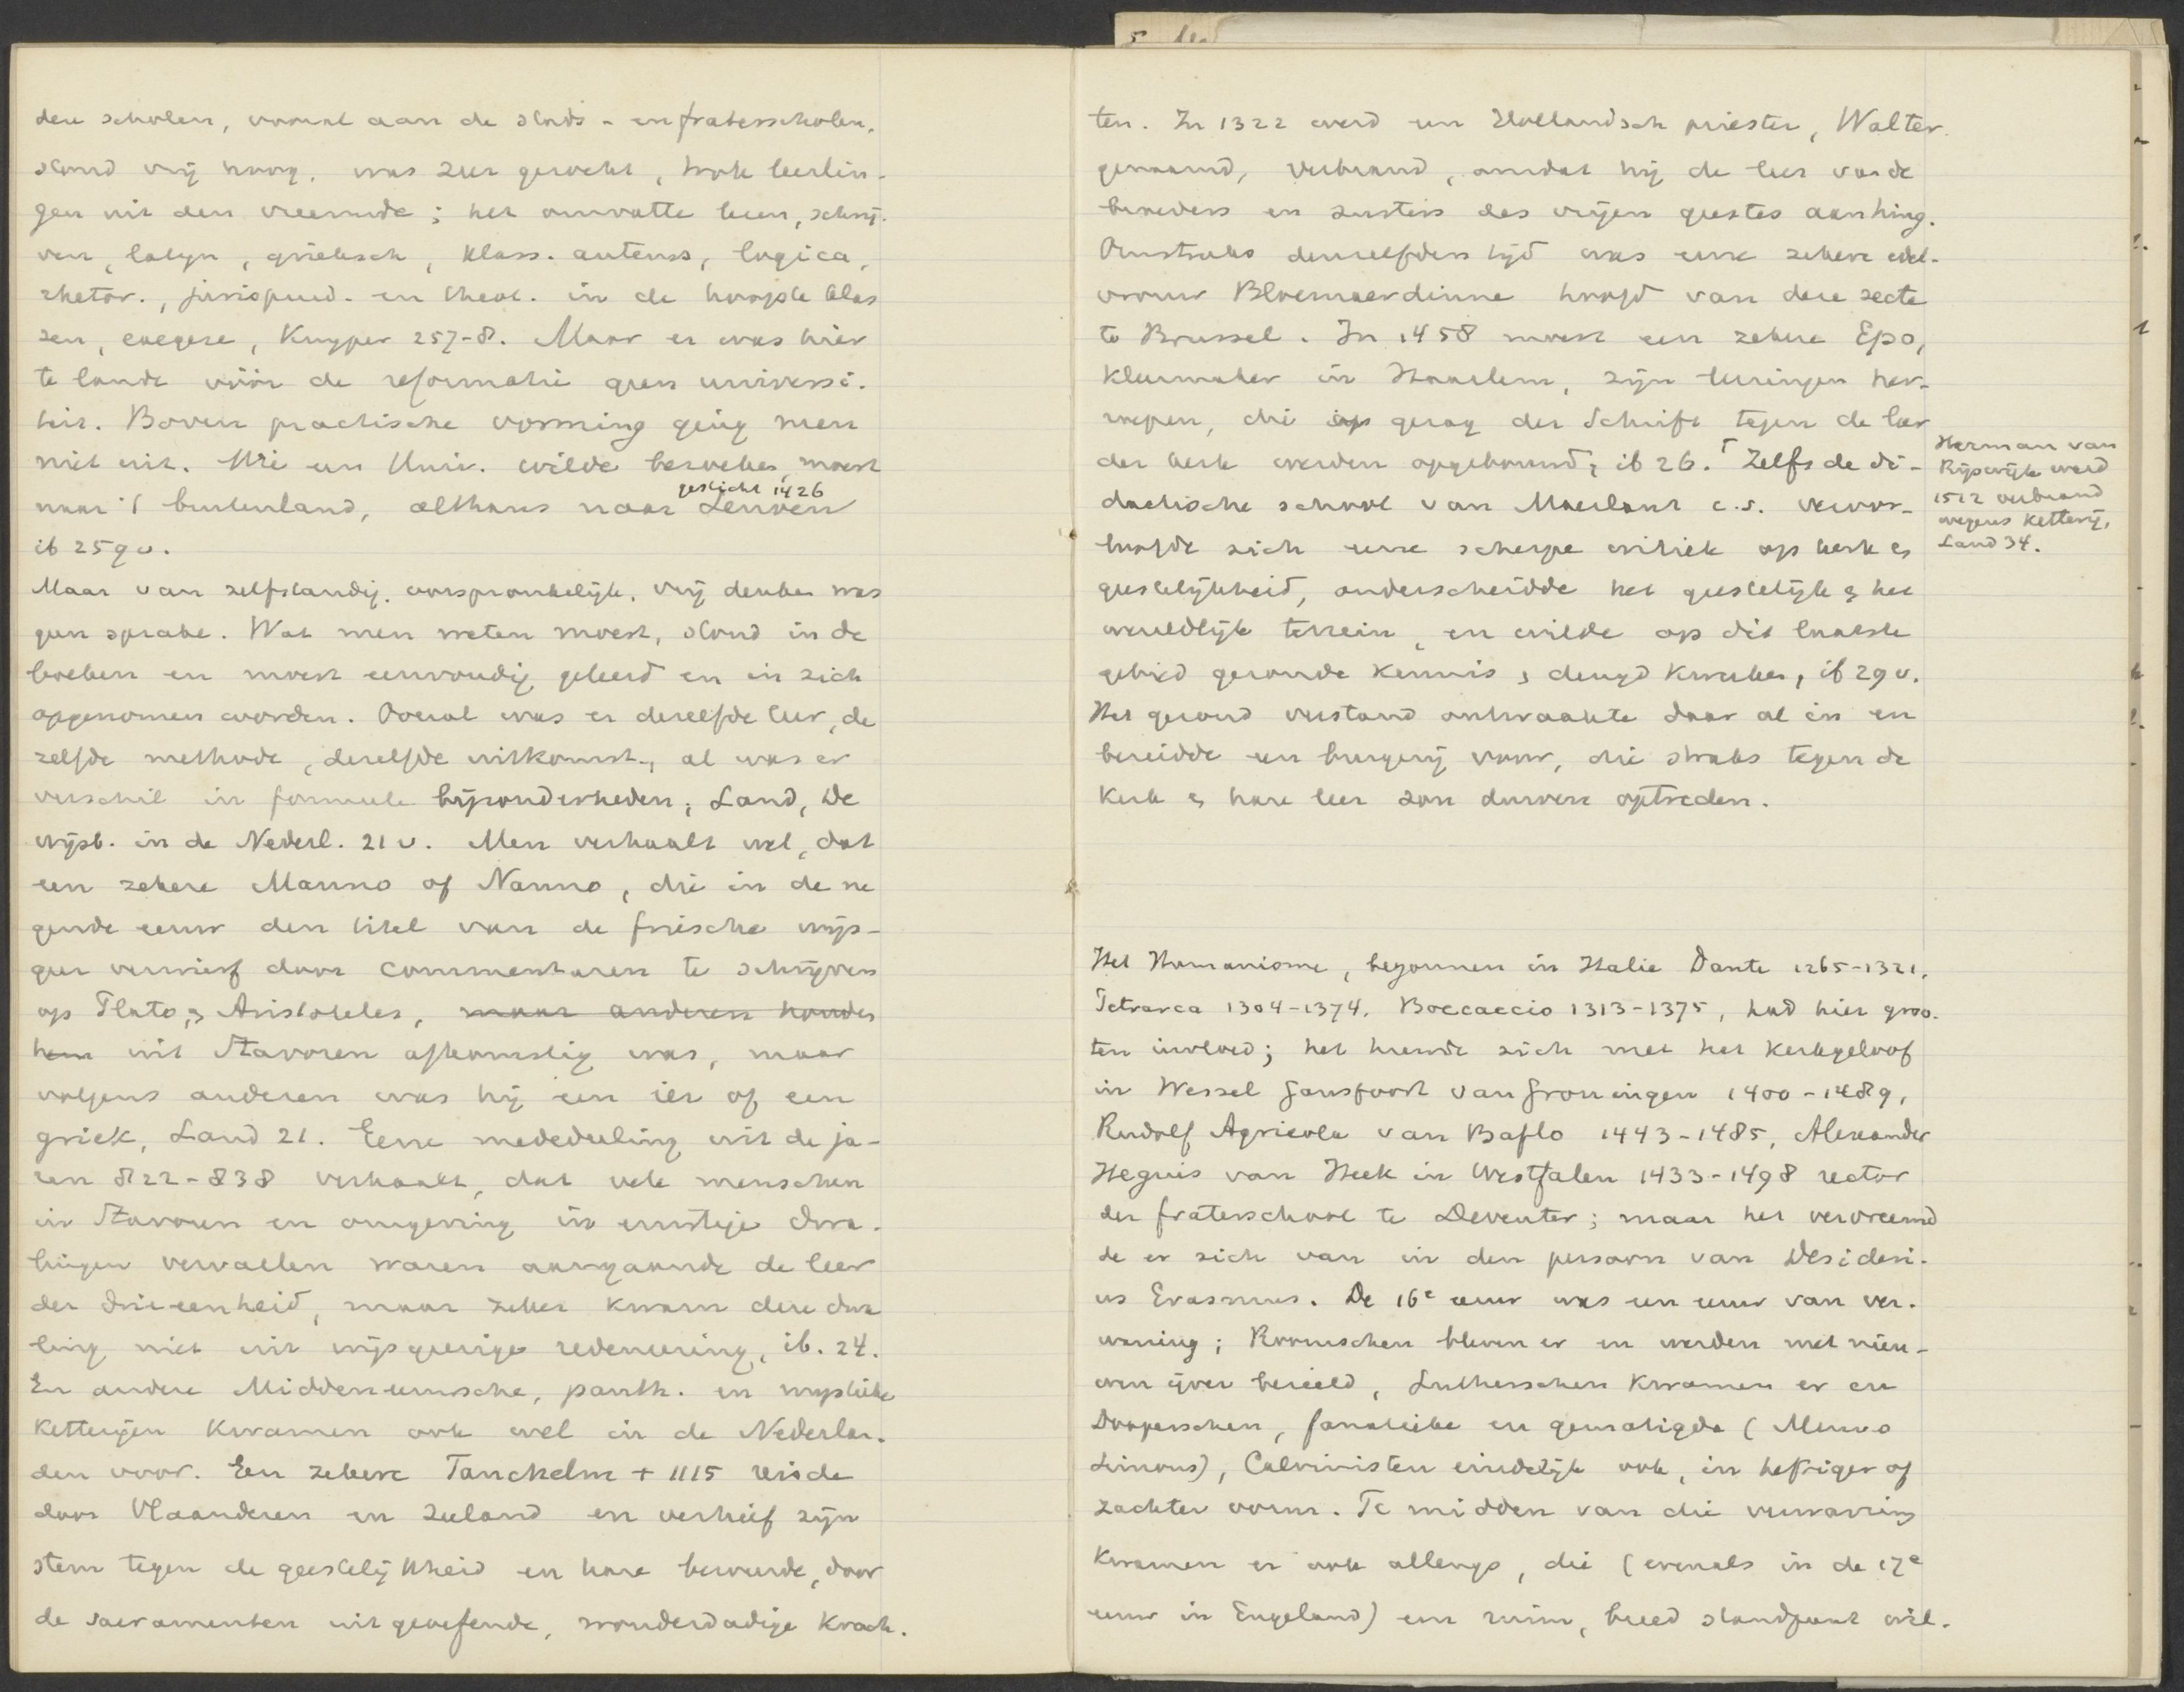 den scholen, vooral aan de stads- en fraterscholen,
stond vrij hoog, was zeer gezocht, trok leerlin-
gen uit den vreemde; het omvatte lezen, schrij-
ven, latijn, grieksch, klass. auteurs, logica,
rhetor., jurisprud. en theol. in de hoogste klas
sen, exegese, Kuyper 257-8. Maar er was hier
te lande vóór de reformatie geen universi-
teit. Boven practische vorming ging men
niet uit. Wie een Univ. wilde bezoeken, moest
gesticht 1426
naar 't buitenland, althans naar Leuven
ib 259 v.
Maar van zelfstandig, oorspronkelijk, vrij denken was
geen sprake. Wat men weten moest, stond in de
boeken en moest eenvoudig geleerd en in zich
opgenomen worden. Overal was er dezelfde leer, de
zelfde methode, dezelfde uitkomst, al was er
verschil in formeele bijzonderheden; Land, De
wijsb. in de Nederl. 21 v. Men verhaalt wel, dat
een zekere Manno of Nanno, die in de ne
gende eeuw den titel van de friesche wijs-
geer verwierf door commentaren te schrijven
op Plato, & Aristoteles, maar anderen houden
hem uit Stavoren afkomstig was, maar
volgens anderen was hij een ier of een
griek, Land 21. Eene mededeeling uit de ja-
ren 822-838 verhaalt, dat vele menschen
in Stavoren en omgeving in ernstige dwa-
lingen vervallen waren aangaande de leer
der drieëenheid, maar zeker kwam deze dwa
ling niet uit wijsgeerige redeneering, ib. 24.
En andere Middeneeuwsche, panth. en mystieke
ketterijen kwamen ook wel in de Nederlan-
den voor. Een zekere Tanchelm + 1115 reisde
door Vlaanderen en Zeeland en verhief zijn
stem tegen de geestelijkheid en hare beweerde, door
de sacramenten uitgeoefende, wonderdadige krach-
ten. In 1322 werd een Hollandsch priester, Walter
genaamd, verbrand, omdat hij de leer van de
broeders en zusters des vrijen geestes aanhing.
Omstreeks denzelfden tijd was eene zekere edel-
vrouw Bloemaerdinne hoofd van deze secte
te Brussel. In 1458 moest een zekere Epo,
kleermaker in Haarlem, zijn leeringen her-
roepen, die op gezag der Schrift tegen de leer
der kerk werden opgebouwd, ib 26. Zelfs de di-
dactische school van Maerlant c.s. veroor-
loofde zich eene scherpe critiek op kerk &
geestelijkheid, onderscheidde het geestelijk & het
wereldlijk terrein, en wilde op dit laatste
gebied gezonde kennis & deugd kweeken, ib 29 v.
Het gezond verstand ontwaakte daar al in en
bereidde een burgerij voor, die straks tegen de
kerk & hare leer zou durven optreden.
Herman van
Rijswijk werd
1512 verbrand
wegens ketterij,
Land 34.
Het Humanisme, begonnen in Italie Dante 1265-1321,
Petrarca 1304-1374, Boccaccio 1313-1375, had hier groo-
ten invloed; het huwde zich met het kerkgeloof
in Wessel Gansfoort van Groningen 1400-1489,
Rudolf Agricola van Baflo 1443-1485, Alexander
Hegius van Heek in Westfalen 1433-1498 rector
der fraterschool te Deventer; maar het vervreemd
de er zich van in den persoon van Desideri-
us Erasmus. De 16e eeuw was een eeuw van ver-
warring; Roomschen bleven er en werden met nieu-
wen ijver bezield, Lutherschen kwamen er en
Dooperschen, fanatieke en gematigde (Menno
Simons), Calvinisten eindelijk ook, in heftiger of
zachter vorm. Te midden van die verwarring
kwamen er ook allengs, die (evenals in de 17e
eeuw in Engeland) een ruim, breed standpunt wil-